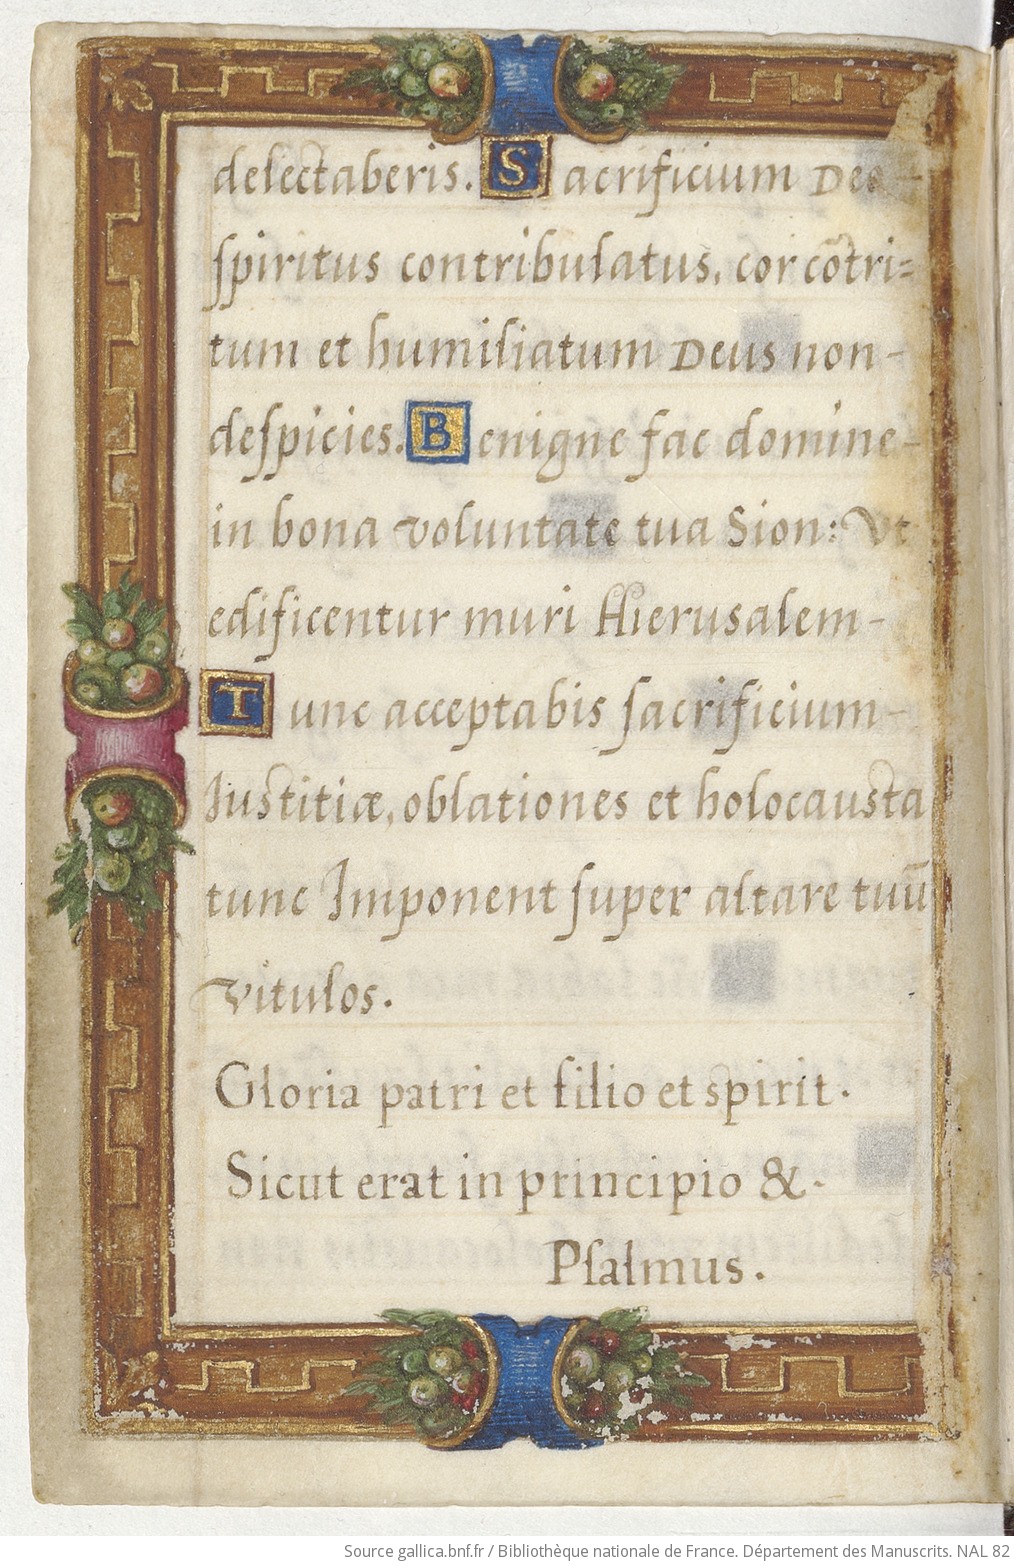 delectaberis. Sacrificium Deo
spiritus contribulatus, cor cōtri=
tum et humiliatum Deus non-
despicies. Benigne fac domine-
in bona voluntate tua Sion: Vt
edificentur muri Hierusalem-
Tunc acceptabis sacrificium-
Iustitiæ, oblationes et holocausta
tunc Imponent super altare tuū
vitulos.
Gloria patri et filio et spirit.
Sicut erat in principio &.
Psalmus.
Source gallica.bnf.fr / Bibliothèque nationale de France. Département des Manuscrits. NAL 82